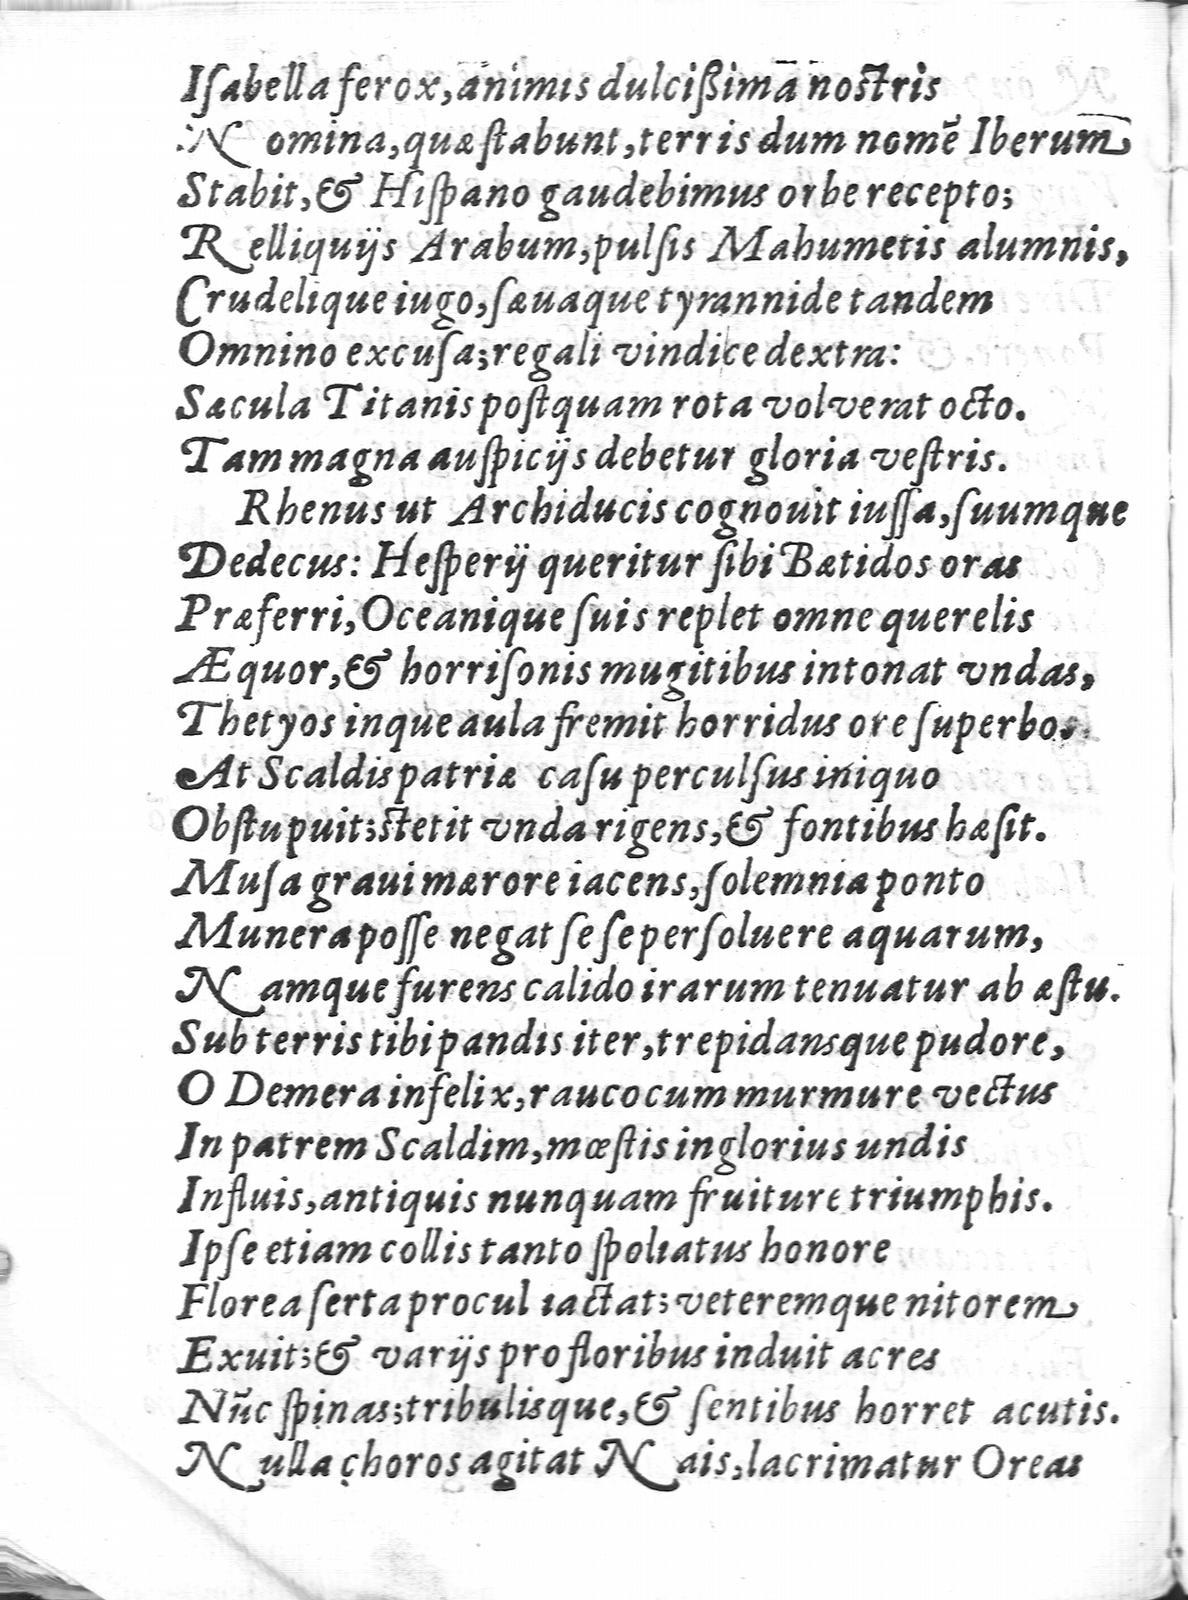 Iſabella ferox, animis dulcißima noſtris
Nomina, quæ ſtabunt, terris dum nomē Iberum
Stabit, & Hiſpano gaudebimus orbe recepto;
Relliquijs Arabum, pulſis Mahumetis alumnis,
Crudelique iugo, ſæuaque tyrannide tandem
Omnino excuſa; regali vindice dextra:
Sæcula Titanis poſtquam rota volverat octo.
Tam magna auſpicijs debetur gloria veſtris.
Rhenus ut Archiducis cognouit iuſſa, ſuumque
Dedecus: Heſperij queritur ſibi Bætidos oras
Præferri, Oceanique ſuis replet omne querelis
Æquor, & horriſonis mugitibus intonat vndas,
Thetyos inque aula fremit horridus ore ſuperbo.
At Scaldis patriæ caſu perculſus iniquo
Obſtupuit; ſtetit vnda rigens, & fontibus hæſit.
Muſa graui mærore iacens, ſolemnia ponto
Munera poſſe negat ſe ſe perſoluere aquarum,
Namque furens calido irarum tenuatur ab æſtu.
Sub terris tibi pandis iter, trepidansque pudore,
O Demera infelix, rauco cum murmure vectus
In patrem Scaldim, mœſtis inglorius undis
Influis, antiquis nunquam fruiture triumphis.
Ipſe etiam collis tanto ſpoliatus honore
Florea ſerta procul iactat; veteremque nitorem
Exuit; & varijs pro floribus induit acres
Nūc ſpinas; tribulisque, & ſentibus horret acutis.
Nulla choros agitat Nais, lacrimatur Oreas